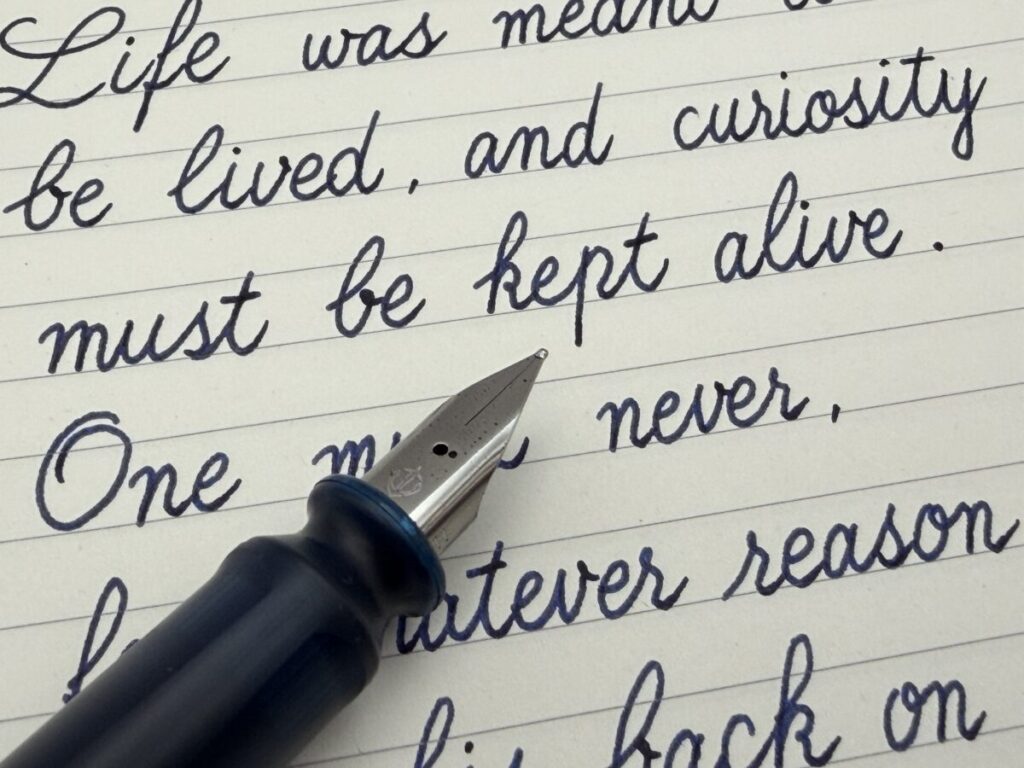 Life was meant
be lived, and curiosity
must be kept alive.
One never,
reason
back on